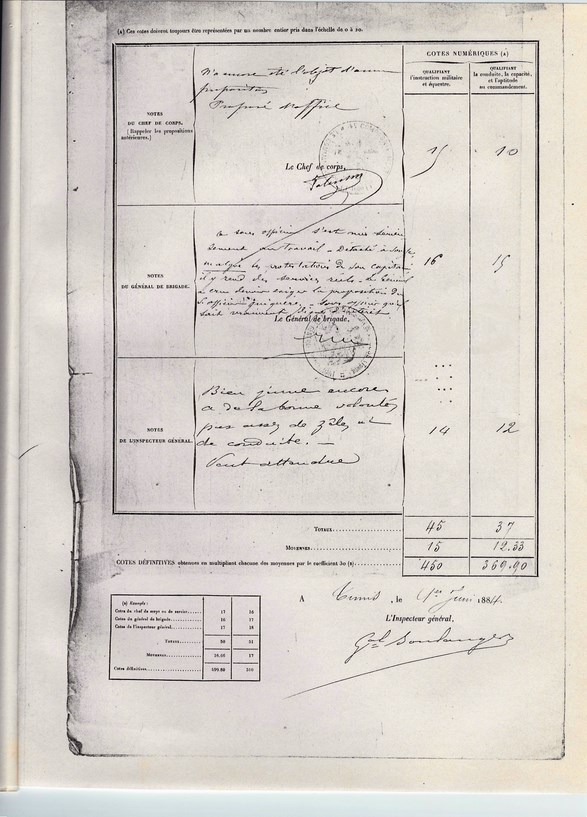 (1) Ces cotes doivent toujours être représentées par un nombre entier pris dans l'échelle de 0 à 20.
COTES NUMÉRIQUES (1)
QUALIFIANT
l'instruction militaire
et équestre.
QUALIFIANT
la conduite, la capacité,
et l'aptitude
au commandement.
NOTES
DU CHEF DE CORPS.
(Rappeler les propositions
antérieures.)
N'a encore été l'objet d'aucune
proposition
Proposé d'office
Le Chef de corps,
15 10
NOTES
DU GÉNÉRAL DE BRIGADE.
sous officier s'est mis
au travail - Détaché à
malgré les protestations de son capitaine
il y rend des services réels.
a cru devoir la proposition du
S. officier sous officier qu'il
sait vraiment digne d'intérêt
Le Général de brigade,
16 15
NOTES
DE L'INSPECTEUR GÉNÉRAL.
Bien jeune encore
a de la bonne volonté
pas assez de zèle et
de conduite. —
Peut attendre
14 12
TOTAUX 45 37
MOYENNES 15 12.33
COTES DÉFINITIVES obtenues en multipliant chacune des moyennes par le coefficient 30 (2) 450 369.90
(2) Exemple :
Cotes du chef de corps ou de service 17 16
Cotes du général de brigade 16 17
Cotes de l'inspecteur général 17 18
TOTAUX 50 51
MOYENNES 16.66 17
Cotes définitives 499.80 510
A Tunis, le 1er Juin 1884.
L'Inspecteur général,
Gal Boulanger